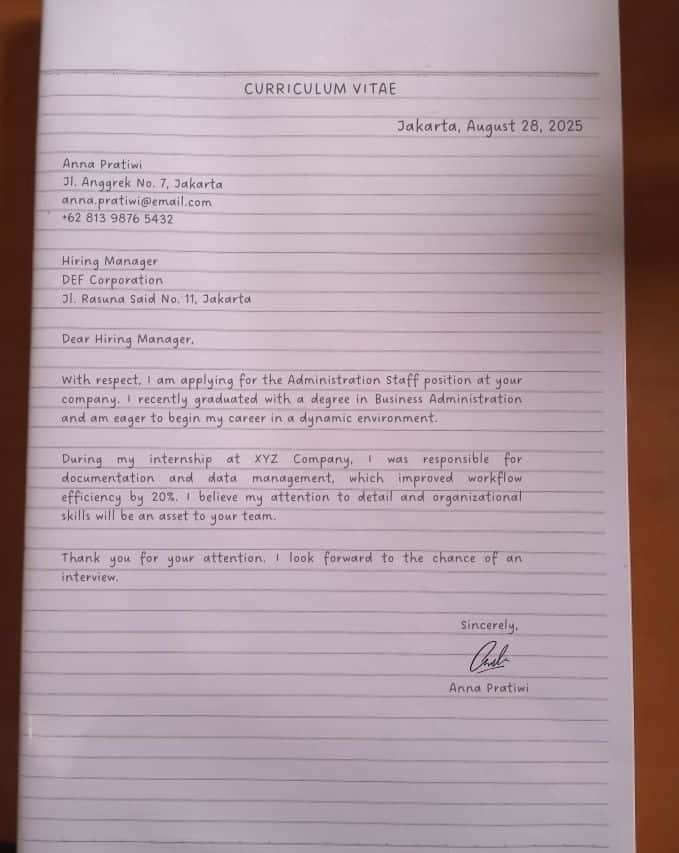 CURRICULUM VITAE
Jakarta, August 28, 2025
Anna Pratiwi
Jl. Anggrek No. 7, Jakarta
anna.pratiwi@email.com
+62 813 9876 5432
Hiring Manager
DEF Corporation
Jl. Rasuna Said No. 11, Jakarta
Dear Hiring Manager,
With respect, I am applying for the Administration Staff position at your
company. I recently graduated with a degree in Business Administration
and am eager to begin my career in a dynamic environment.
During my internship at XYZ Company, I was responsible for
documentation and data management, which improved workflow
efficiency by 20%. I believe my attention to detail and organizational
skills will be an asset to your team.
Thank you for your attention. I look forward to the chance of an
interview.
Sincerely,
Anna Pratiwi